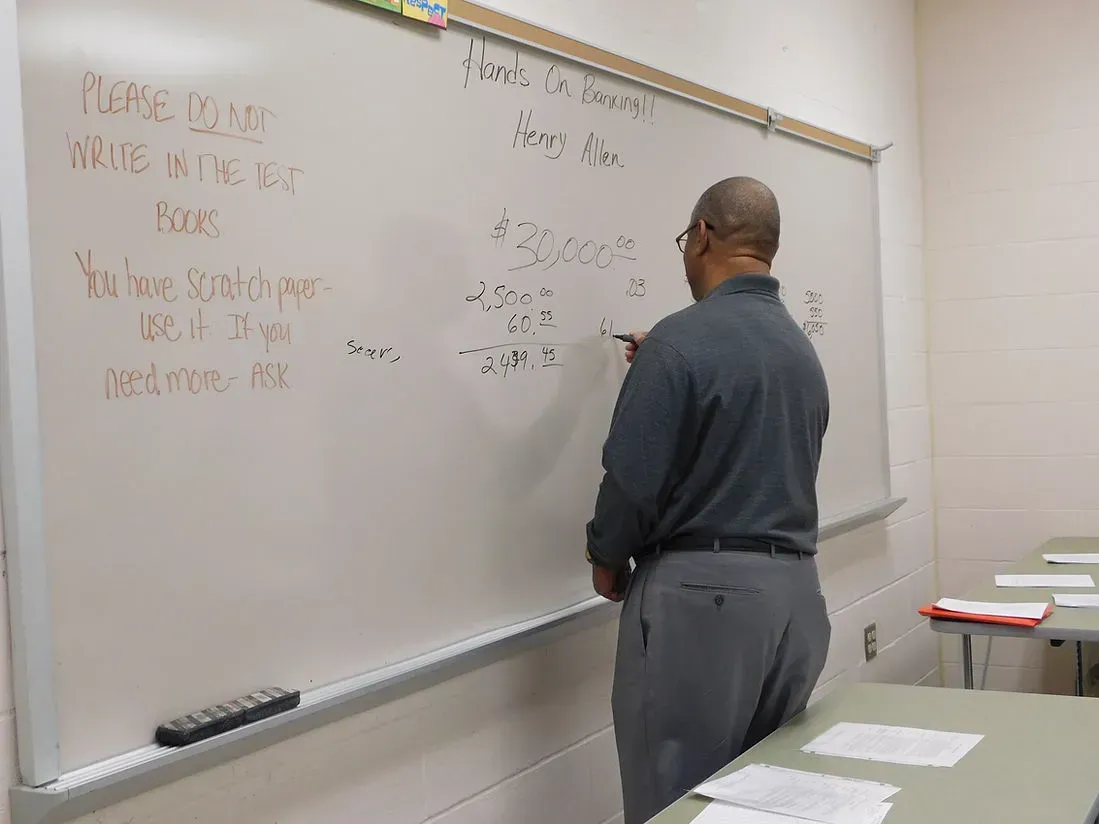 Respect
PLEASE DO NOT
WRITE IN THE TEST
BOOKS
You have scratch paper-
use it. If you
need more- ASK
Hands On Banking!!
Henry Allen
$30,000.00
2,500.00
60.55
2439.45
.03
61
5000